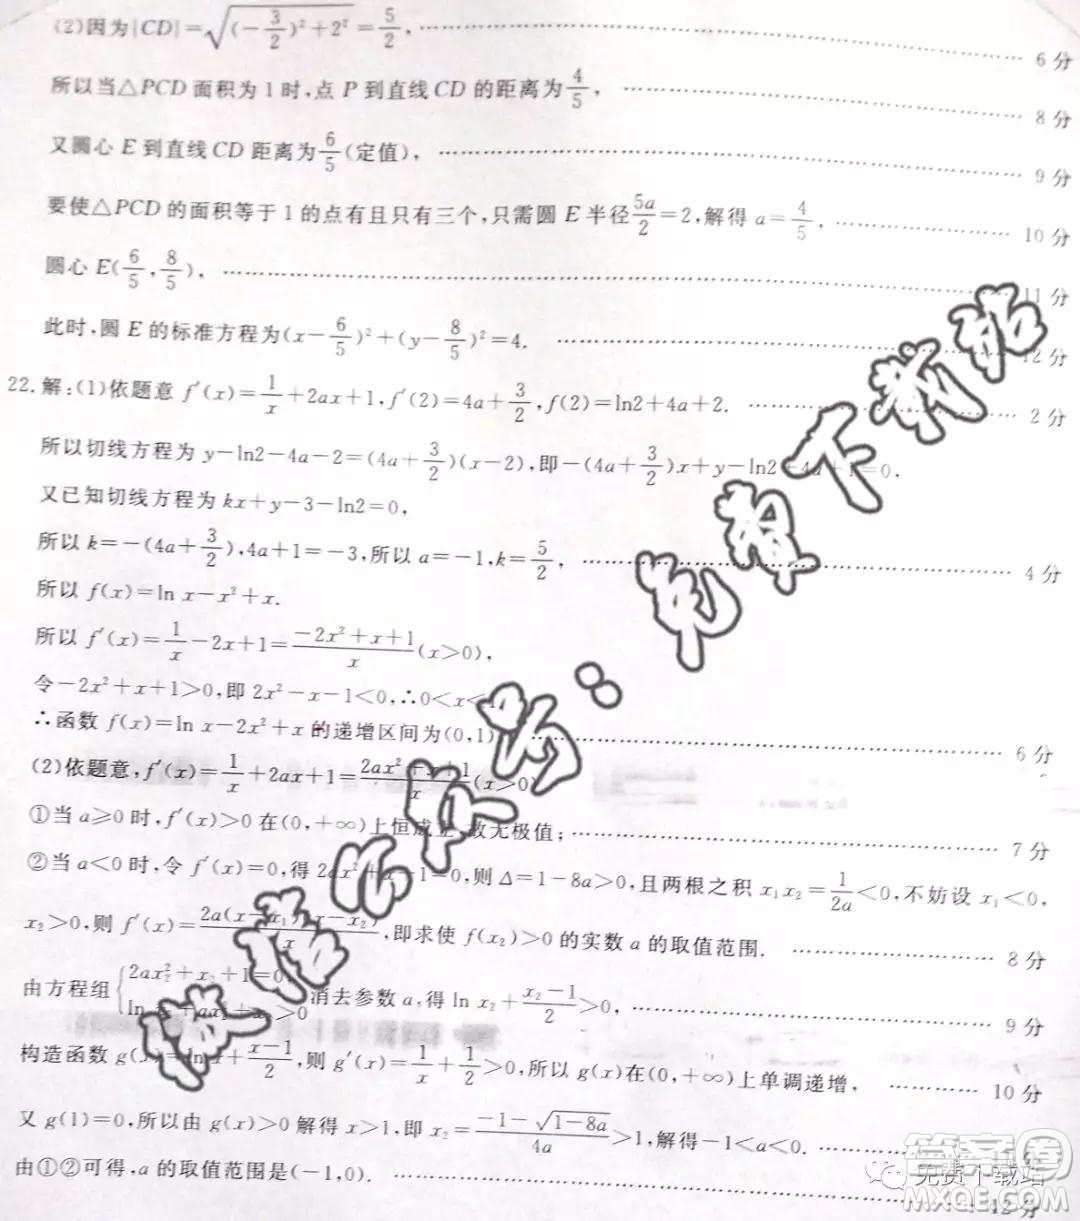 (2)因为|CD|=√((-3/2)²+2²)=5/2, …… 6分
所以当△PCD面积为1时,点P到直线CD的距离为4/5, …… 8分
又圆心E到直线CD距离为6/5(定值), …… 9分
要使△PCD的面积等于1的点有且只有三个,只需圆E半径5a/2=2,解得a=4/5, …… 10分
圆心E(6/5,8/5). …… 11分
此时,圆E的标准方程为(x-6/5)²+(y-8/5)²=4. …… 12分
22.解:(1)依题意 f′(x)=1/x+2ax+1,f′(2)=4a+3/2,f(2)=ln2+4a+2. …… 2分
所以切线方程为y-ln2-4a-2=(4a+3/2)(x-2),即-(4a+3/2)x+y-ln2+4a+1=0,
又已知切线方程为kx+y-3-ln2=0,
所以k=-(4a+3/2),4a+1=-3,所以a=-1,k=5/2, …… 4分
所以 f(x)=ln x-x²+x.
所以 f′(x)=1/x-2x+1=(-2x²+x+1)/x(x>0),
令-2x²+x+1>0,即2x²-x-1<0,∴0<x<1
∴函数 f(x)=ln x-2x²+x的递增区间为(0,1) …… 6分
(2)依题意,f′(x)=1/x+2ax+1=(2ax²+x+1)/x(x>0)
①当a≥0时,f′(x)>0在(0,+∞)上恒成立,故无极值; …… 7分
②当a<0时,令 f′(x)=0,得2ax²+x+1=0,则Δ=1-8a>0,且两根之积x₁x₂=1/2a<0,不妨设x₁<0,
x₂>0,则 f′(x)=2a(x-x₁)(x-x₂)/x,即求使 f(x₂)>0的实数a的取值范围. …… 8分
由方程组{2ax₂²+x₂+1=0, ln x₂+ax₂²+x₂>0 消去参数a,得ln x₂+(x₂-1)/2>0, …… 9分
构造函数g(x)=ln x+(x-1)/2,则g′(x)=1/x+1/2>0,所以g(x)在(0,+∞)上单调递增, …… 10分
又g(1)=0,所以由g(x)>0解得x>1,即x₂=(-1-√(1-8a))/4a>1,解得-1<a<0. …… 11分
由①②可得,a的取值范围是(-1,0). …… 12分
微信公众号:免费下载站
答案圈
免费下载站
MXQE.COM